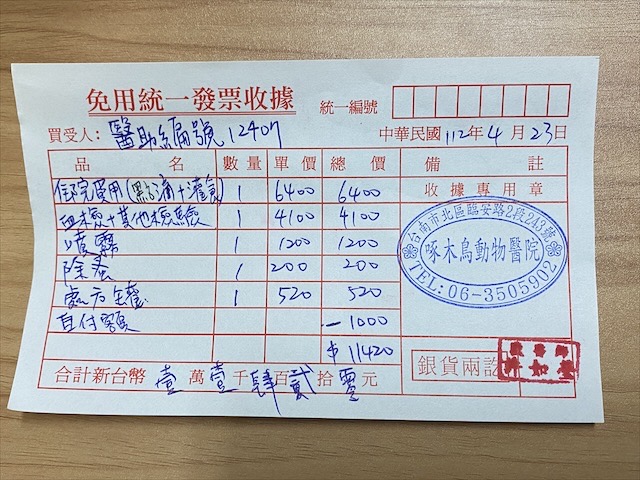 免用統一發票收據
統一編號
買受人：醫助編號12407
中華民國112年4月23日
品名 數量 單價 總價 備註
住院費用(點滴+灌食) 1 6400 6400 收據專用章
血檢+其他檢驗 1 4100 4100
噴霧 1 1200 1200
除蚤 1 200 200
處方餐 1 520 520
自付額 -1000
$11420
台南市北區臨安路2段243號
啄木鳥動物醫院
TEL:06-3505902
合計新台幣 壹萬壹千肆百貳拾零元
銀貨兩訖